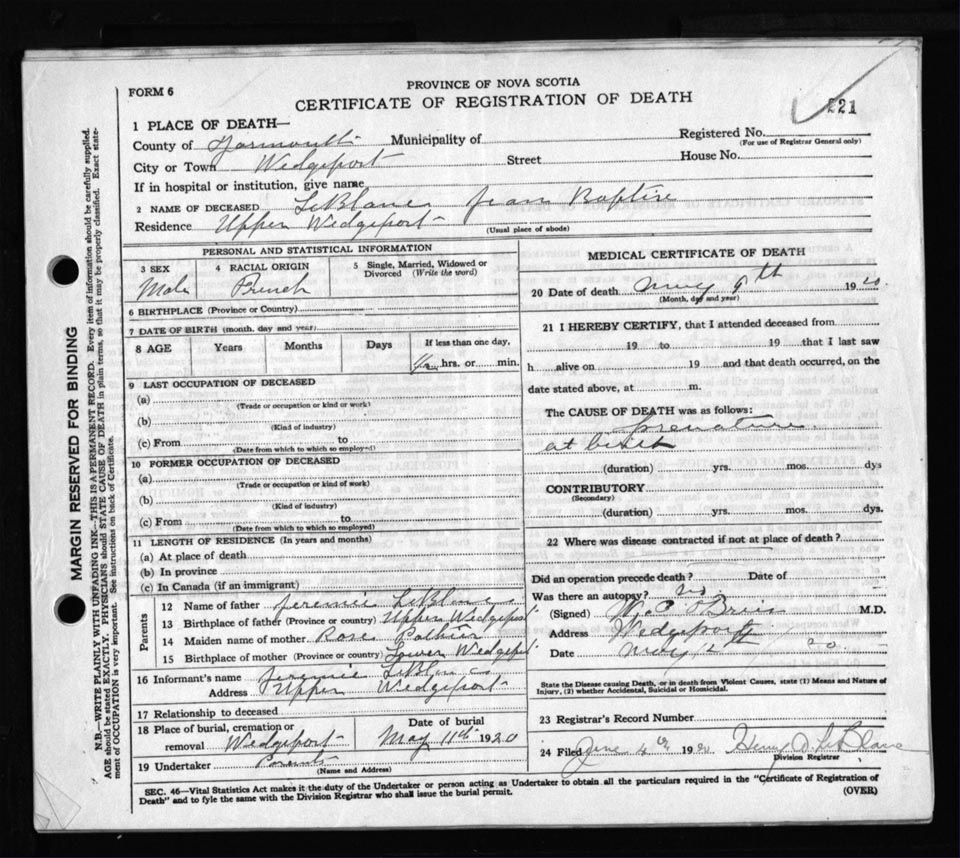 PROVINCE OF NOVA SCOTIA
FORM 6
CERTIFICATE OF REGISTRATION OF DEATH
221
1 PLACE OF DEATH—
County of Yarmouth Municipality of Registered No.
(For use of Registrar General only)
City or Town Wedgeport Street House No.
If in hospital or institution, give name
2 NAME OF DECEASED LeBlanc Jean Baptise
Residence Upper Wedgeport
(Usual place of abode)
PERSONAL AND STATISTICAL INFORMATION
3 SEX Male
4 RACIAL ORIGIN French
5 Single, Married, Widowed or Divorced (Write the word)
6 BIRTHPLACE (Province or Country)
7 DATE OF BIRTH (month, day and year)
8 AGE Years Months Days If less than one day,
hrs. or min.
9 LAST OCCUPATION OF DECEASED
(a)
(Trade or occupation or kind or work)
(b)
(Kind of industry)
(c) From to
(Date from which to which so employed)
10 FORMER OCCUPATION OF DECEASED
(a)
(Trade or occupation or kind of work)
(b)
(Kind of industry)
(c) From to
(Date from which to which so employed)
11 LENGTH OF RESIDENCE (In years and months)
(a) At place of death
(b) In province
(c) In Canada (if an immigrant)
Parents
12 Name of father Jeremie LeBlanc
13 Birthplace of father (Province or country) Upper Wedgeport
14 Maiden name of mother Rose Pothier
15 Birthplace of mother (Province or country) Lower Wedgeport
16 Informant's name Jeremie LeBlanc
Address Upper Wedgeport
17 Relationship to deceased
18 Place of burial, cremation or removal Wedgeport
Date of burial May 11th 1920
19 Undertaker Parents
(Name and Address)
MEDICAL CERTIFICATE OF DEATH
20 Date of death May 9th 1920
(Month, day and year)
21 I HEREBY CERTIFY, that I attended deceased from
19 to 19 that I last saw
h alive on 19 and that death occurred, on the
date stated above, at m.
The CAUSE OF DEATH was as follows:
premature
at birth
(duration) yrs. mos. dys
CONTRIBUTORY
(Secondary)
(duration) yrs. mos. dys.
22 Where was disease contracted if not at place of death?
Did an operation precede death? Date of
Was there an autopsy? no
(Signed) M.D.
Address Wedgeport
Date May 12th 20
State the Disease causing Death, or in death from Violent Causes, state (1) Means and Nature of
Injury, (2) whether Accidental, Suicidal or Homicidal.
23 Registrar's Record Number
24 Filed June 4th 1920 Henry D. LeBlanc
Division Registrar
SEC. 46—Vital Statistics Act makes it the duty of the Undertaker or person acting as Undertaker to obtain all the particulars required in the "Certificate of Registration of
Death" and to fyle the same with the Division Registrar who shall issue the burial permit.
(OVER)
MARGIN RESERVED FOR BINDING
N.B.—WRITE PLAINLY WITH UNFADING INK—THIS IS A PERMANENT RECORD. Every item of information should be carefully supplied.
AGE should be stated EXACTLY. PHYSICIANS should STATE CAUSE OF DEATH in plain terms, so that it may be properly classified. Exact state-
ment of OCCUPATION is very important. See instructions on back of Certificate.